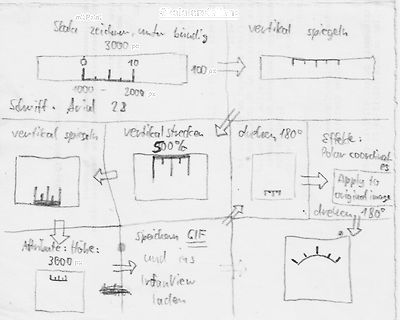 mit Paint
Skala zeichnen, unten bündig
3000 px
0 10
100 px
1000 - 2000 px
Schrift: Arial 28
vertikal spiegeln
vertikal spiegeln
vertikal strecken
500%
drehen 180°
Effekte:
Polar coordinates
Apply to
original image
drehen 180°
Attribute: Höhe:
3000 px
speichern GIF
und ins
IrfanView
laden